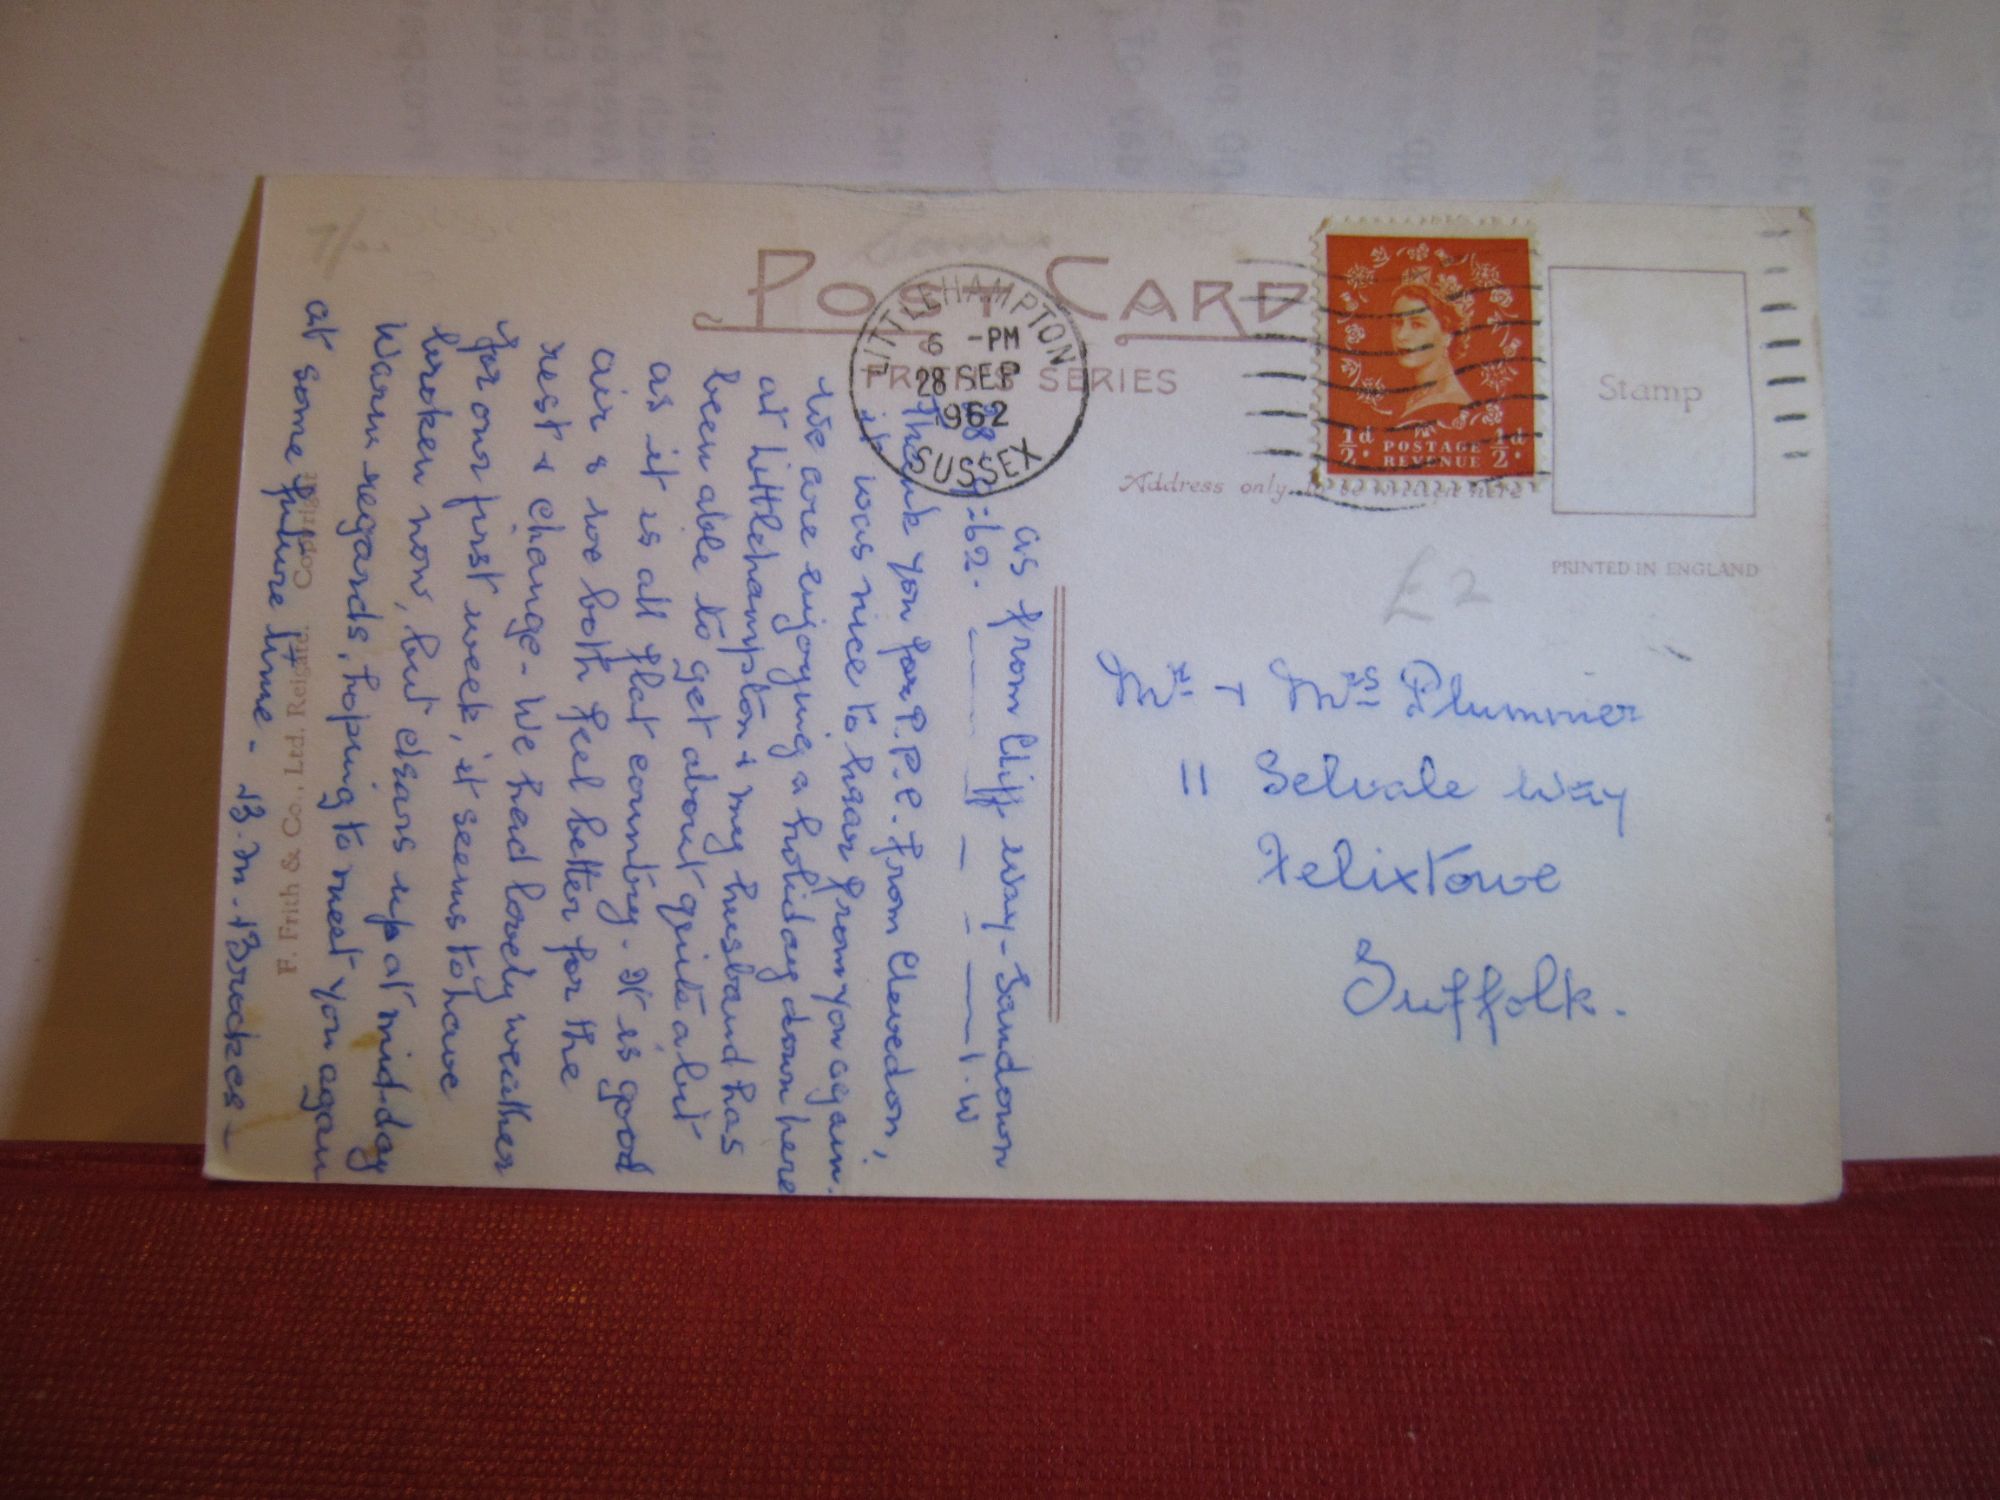 POST CARD
FRITH'S SERIES
LITTLEHAMPTON
6 -PM
28 SEP
1962
SUSSEX
½d POSTAGE ½d
REVENUE
Stamp
Address only to be written here
PRINTED IN ENGLAND
£2
Mr + Mrs Plummer
11 Selvale Way
Felixtowe
Suffolk.
as from Cliff Way - Sandown
9=62. I.W
Thank you for P.P.C. from Clevedon,
it was nice to hear from you again.
We are enjoying a holiday down here
at Littlehampton & my husband has
been able to get about quite a bit
as it is all flat country. It is good
air & we both feel better for the
rest & change. We had lovely weather
for our first week, it seems to have
broken now, but clears up at mid-day
Warm regards, hoping to meet you again
at some future time. B. M. Brookes
F. Frith & Co., Ltd. Reigate. Copyright